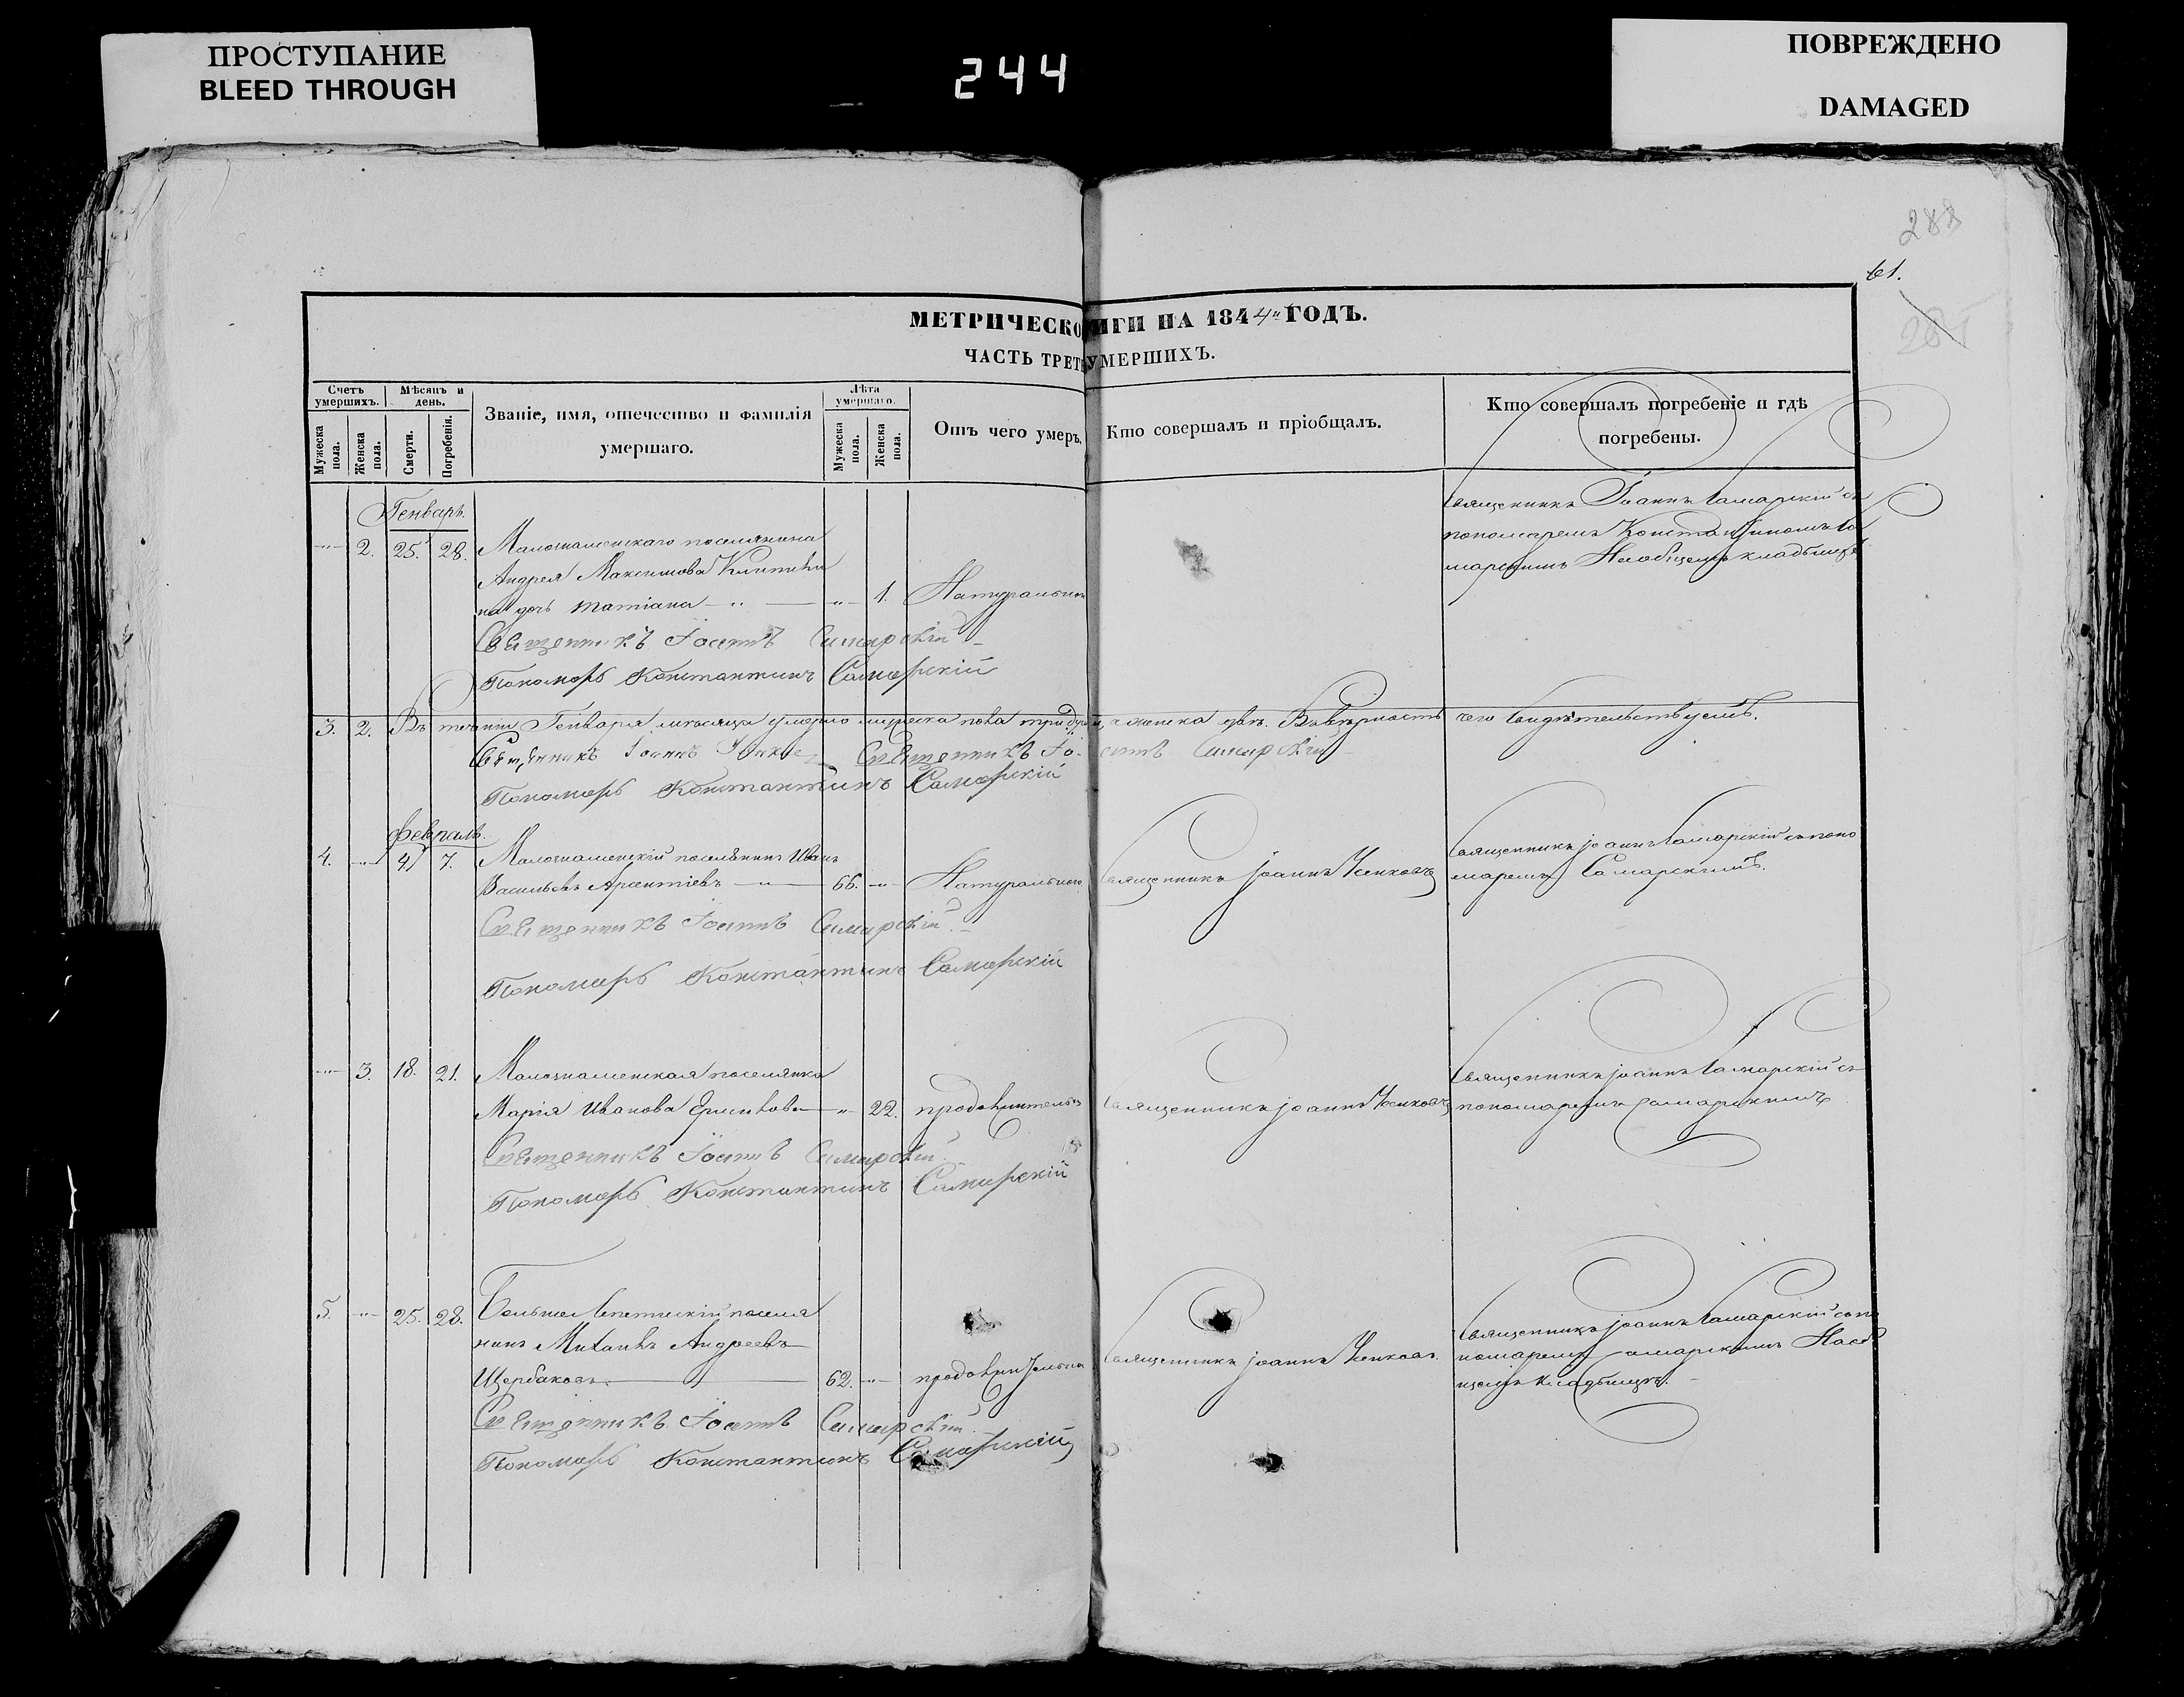 ПРОСТУПАНИЕ
BLEED THROUGH
244
ПОВРЕЖДЕНО
DAMAGED
288
61.
МЕТРИЧЕСКО ИГИ НА 1844 ГОДЪ.
ЧАСТЬ ТРЕТ УМЕРШИХЪ.
Счетъ умершихъ.
Мѣсяцъ и день.
Званіе, имя, отечество и фамилія умершаго.
Лѣта умершаго.
Отъ чего умеръ.
Кто совершалъ и пріобщалъ.
Кто совершалъ погребеніе и гдѣ погребены.
Мужеска пола.
Женска пола.
Смерти.
Погребенія.
Мужеска пола.
Женска пола.
Генварь.
2. 25. 28. Малознаменскаго поселянина
Андрея Максимова
на дочь Татіана 1.
Священникъ Іоаннъ Самарскій съ
пономаремъ Константиномъ Са
марскимъ На общемъ кладбищѣ
Священникъ Іоаннъ Самарскій
Пономарь Константинъ Самарскій
3. 2. Въ теченіи Генваря мѣсяца умерло мужеска пола три души, а женска двѣ. Въ вѣрности чего свидѣтельствуемъ.
Священникъ Іоаннъ Священникъ Іоаннъ Самарскій
Пономарь Константинъ Самарскій
Февраль.
4. 4 7. Малознаменскій поселянинъ Иванъ
Васильевъ Арсентіевъ 66.
Священникъ Іоаннъ
Священникъ Іоаннъ Самарскій съ поно
маремъ Самарскимъ.
Священникъ Іоаннъ Самарскій
Пономарь Константинъ Самарскій
3. 18. 21. Малознаменская поселянка
Марія Иванова 22.
Священникъ Іоаннъ
Священникъ Іоаннъ Самарскій съ
пономаремъ Самарскимъ
Священникъ Іоаннъ Самарскій
Пономарь Константинъ Самарскій
5. 25. 28. поселя
нинъ Михаилъ Андреевъ
Щербаковъ 62.
Священникъ Іоаннъ
Священникъ Іоаннъ Самарскій съ по
номаремъ Самарскимъ На об
щемъ кладбищѣ.
Священникъ Іоаннъ Самарскій
Пономарь Константинъ Самарскій